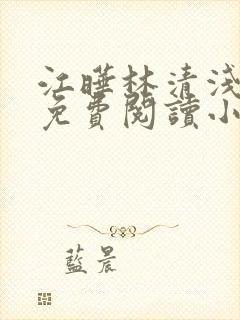 江曄林清淺
免費閱讀小
藍晨